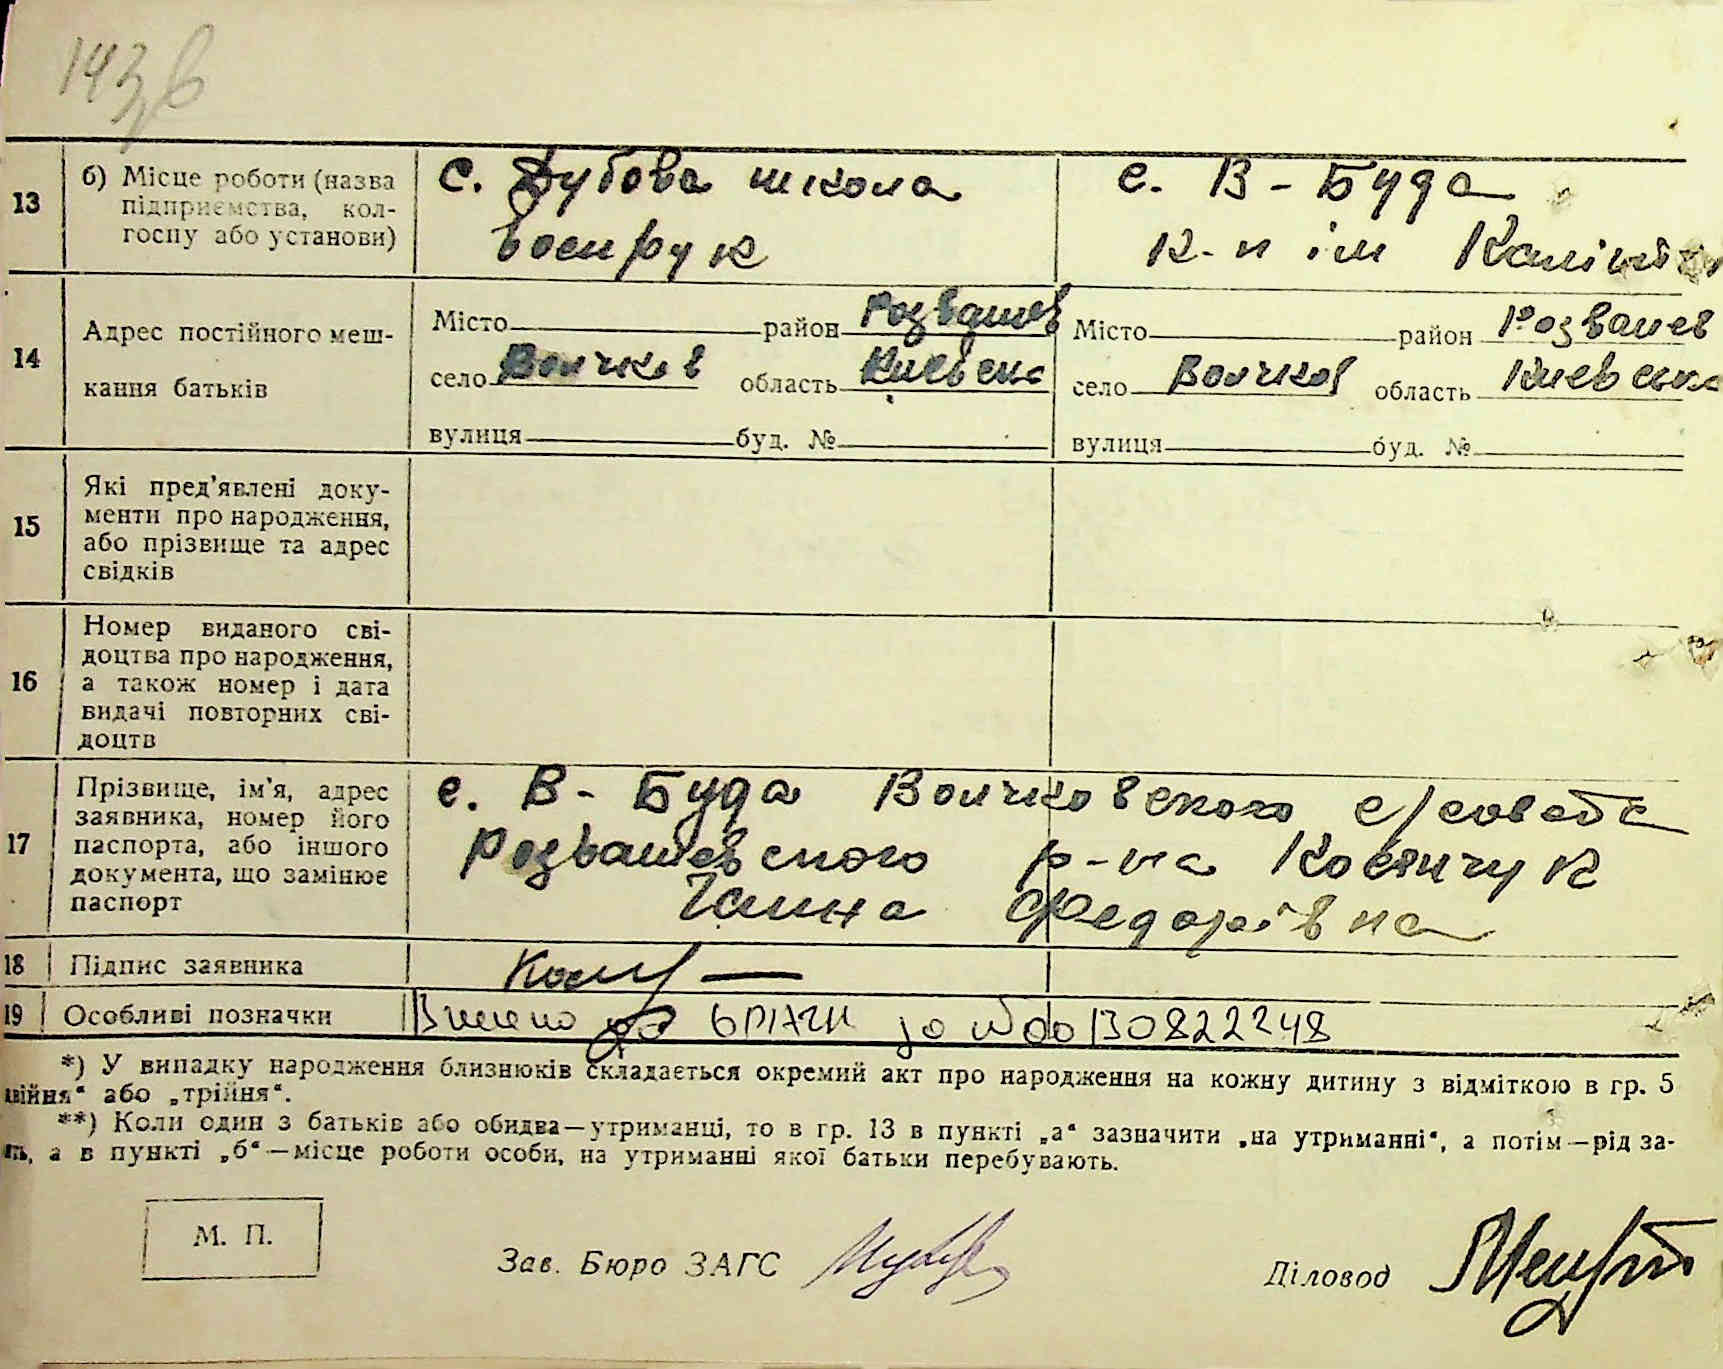 143в
13
б) Місце роботи (назва
підприємства, кол-
госпу або установи)
с. Дубова школа
военрук
с. В-Буда
к-п ім Калініна
14
Адрес постійного меш-
кання батьків
Місто район Розважев
село Волчков область Киевська
вулиця буд. №
Місто район Розважев
село Волчков область Киевська
вулиця буд. №
15
Які пред'явлені доку-
менти про народження,
або прізвище та адрес
свідків
16
Номер виданого сві-
доцтва про народження,
а також номер і дата
видачі повторних сві-
доцтв
17
Прізвище, ім'я, адрес
заявника, номер його
паспорта, або іншого
документа, що замінює
паспорт
с. В-Буда Волчковского с/совета
Розважевского р-на Косянчук
Ганна Федорівна
18
Підпис заявника
19
Особливі позначки
до 130822248
*) У випадку народження близнюків складається окремий акт про народження на кожну дитину з відміткою в гр. 5
війня“ або „трійня“.
**) Коли один з батьків або обидва—утриманці, то в гр. 13 в пункті „а“ зазначити „на утриманні“, а потім—рід за-
ть, а в пункті „б“—місце роботи особи, на утриманні якої батьки перебувають.
М. П.
Зав. Бюро ЗАГС
Діловод